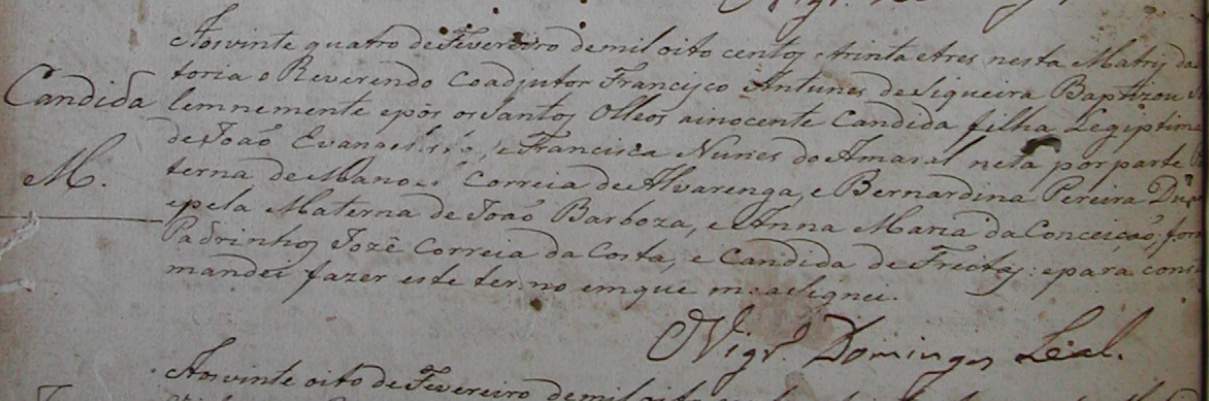 Aos vinte quatro de Fevereiro de mil oito centos e trinta e tres nesta Matriz da
Candida
toria o Reverendo Coadjutor Francisco Antunes de Siqueira Baptizou So
lemnemente e pôs os Santos Olleos a inocente Candida filha Legiptima
de João Evangelista, e Francisca Nunes do Amaral neta por parte
M.
terna de Manoel Correia de Alvarenga, e Bernardina Pereira
e pela Materna de João Barboza, e Anna Maria da Conceição, for
Padrinhos Jozé Correia da Costa, e Candida de Freitas: e para cons
mandei fazer este termo em que me asignei.
O Vigr.º Domingos Leal.
Aos vinte oito de Fevereiro de mil oito